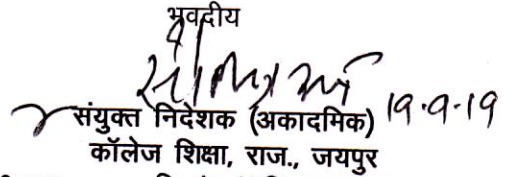 भवदीय
19.9.19
संयुक्त निदेशक (अकादमिक)
कॉलेज शिक्षा, राज., जयपुर